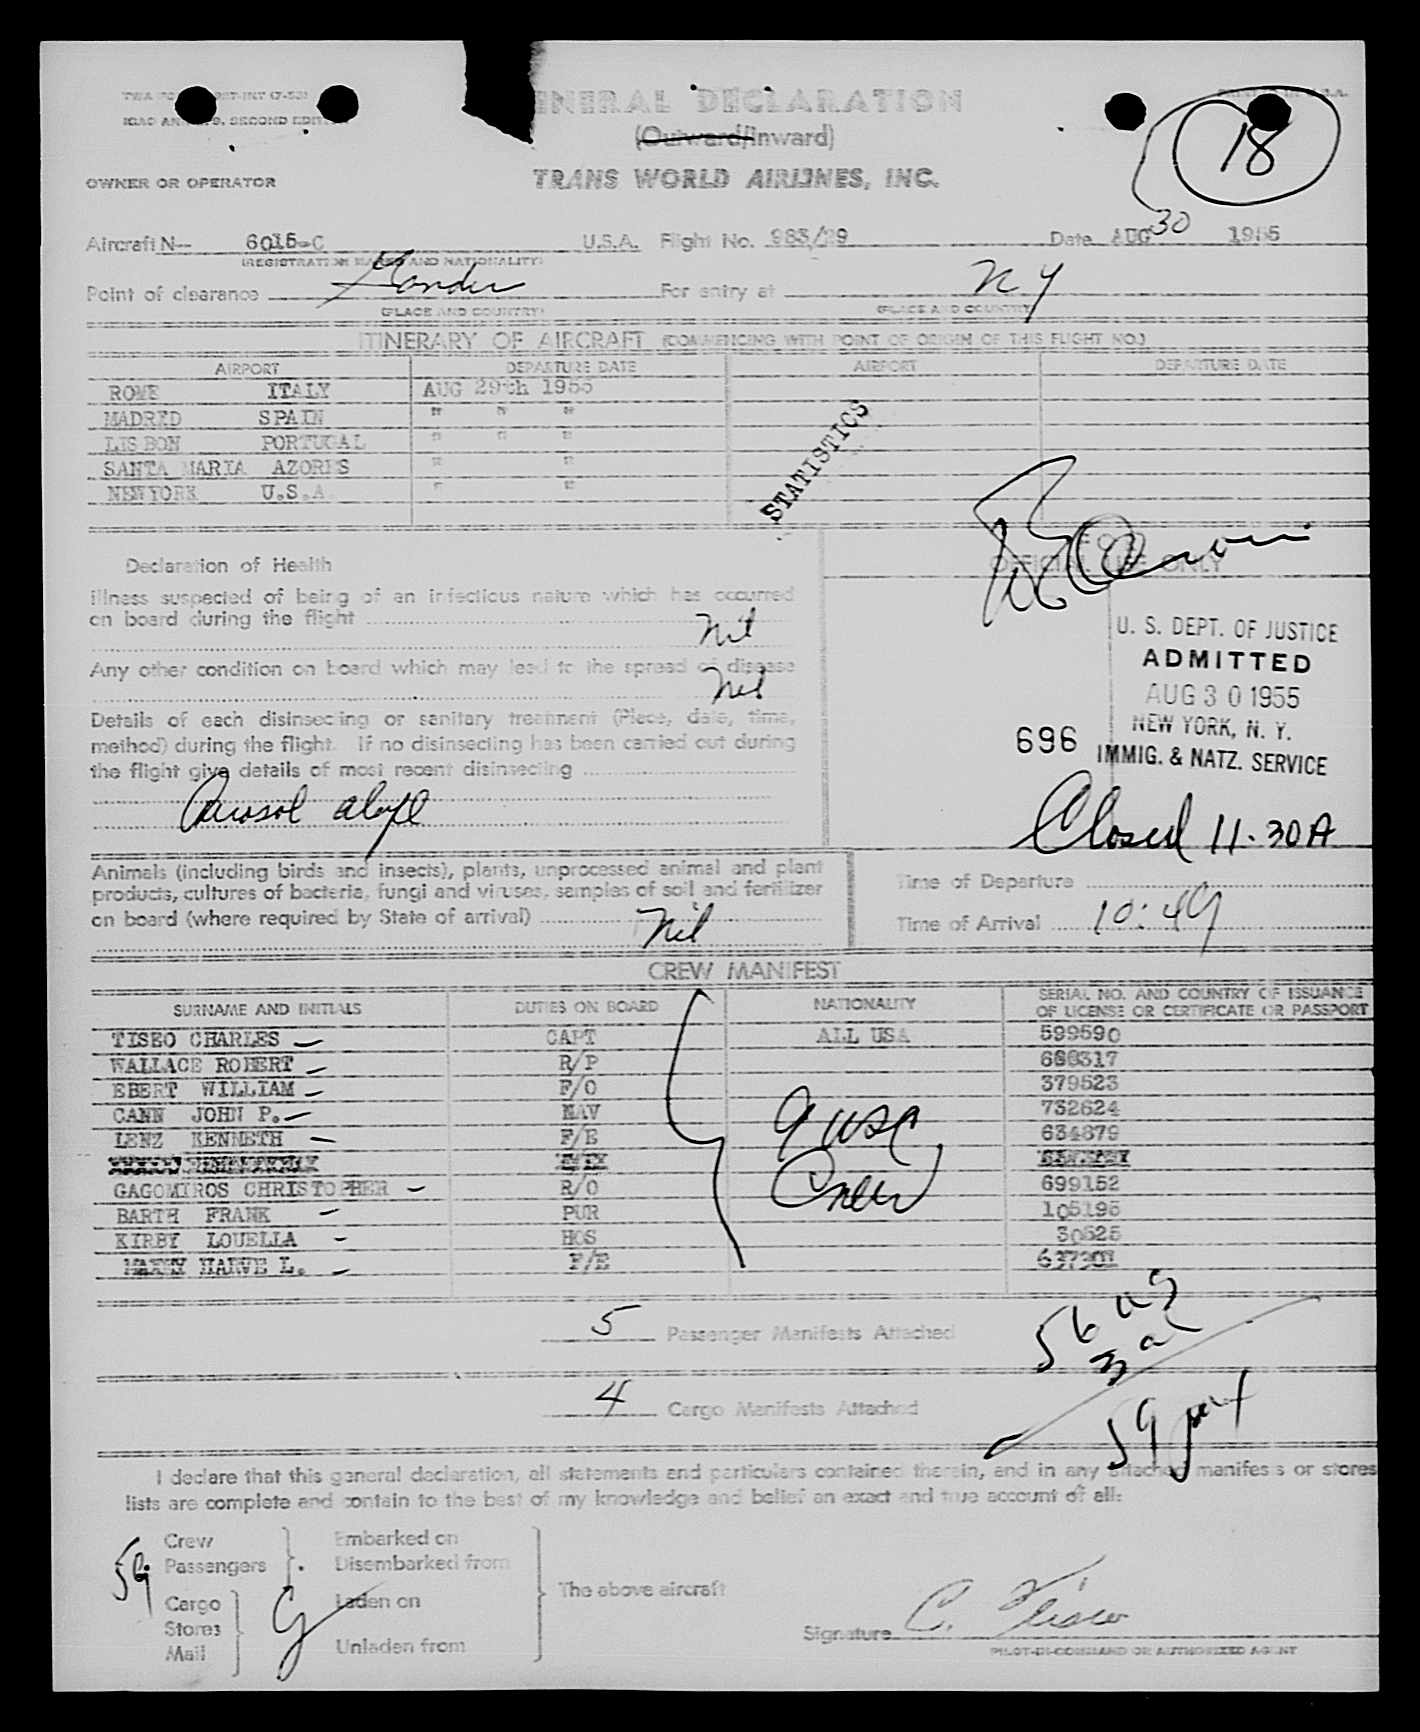 ICAO AN 9, SECOND EDIT
NERAL DECLARATION
(Outward/Inward)
18
OWNER OR OPERATOR
TRANS WORLD AIRLINES, INC.
Aircraft N— 6015-C U.S.A. Flight No. 983/29 Date AUG 30 1955
(REGISTRATION MARKS AND NATIONALITY)
Point of clearance Gander For entry at N Y
(PLACE AND COUNTRY) (PLACE AND COUNTRY)
ITINERARY OF AIRCRAFT (COMMENCING WITH POINT OF ORIGIN OF THIS FLIGHT NO.)
AIRPORT DEPARTURE DATE AIRPORT DEPARTURE DATE
ROME ITALY AUG 29th 1955
MADRED SPAIN " " "
LISBON PORTUGAL " " "
SANTA MARIA AZORES " "
NEWYORK U.S.A. " "
STATISTICS
Declaration of Health
OFFICIAL USE ONLY
Illness suspected of being of an infectious nature which has occurred
on board during the flight Nil
Any other condition on board which may lead to the spread of disease
Nil
Details of each disinsecting or sanitary treatment (Place, date, time,
method) during the flight. If no disinsecting has been carried out during
the flight give details of most recent disinsecting
Aerosol
U. S. DEPT. OF JUSTICE
ADMITTED
AUG 30 1955
NEW YORK, N. Y.
696 IMMIG. & NATZ. SERVICE
Closed 11-30A
Animals (including birds and insects), plants, unprocessed animal and plant
products, cultures of bacteria, fungi and viruses, samples of soil and fertilizer
on board (where required by State of arrival) Nil
Time of Departure
Time of Arrival 10:49
CREW MANIFEST
SURNAME AND INITIALS DUTIES ON BOARD NATIONALITY SERIAL NO. AND COUNTRY OF ISSUANCE
OF LICENSE OR CERTIFICATE OR PASSPORT
TISEO CHARLES — CAPT ALL USA 599590
WALLACE ROBERT — R/P 688317
EBERT WILLIAM — F/O 379523
CANN JOHN P. — NAV 732624
LENZ KENNETH — F/E 634879
GAGOMIROS CHRISTOPHER — R/O 699152
BARTH FRANK — PUR 105195
KIRBY LOUELLA — HOS 30525
HARVE L. — F/E 637301
9 USC
Crew
5 Passenger Manifests Attached
56 US
3 al
4 Cargo Manifests Attached
59
I declare that this general declaration, all statements and particulars contained therein, and in any attached manifests or stores
lists are complete and contain to the best of my knowledge and belief an exact and true account of all:
Crew Embarked on
59 Passengers Disembarked from
The above aircraft
Cargo Laden on
Stores
Mail Unladen from
Signature C. Tiseo
PILOT-IN-COMMAND OR AUTHORIZED AGENT